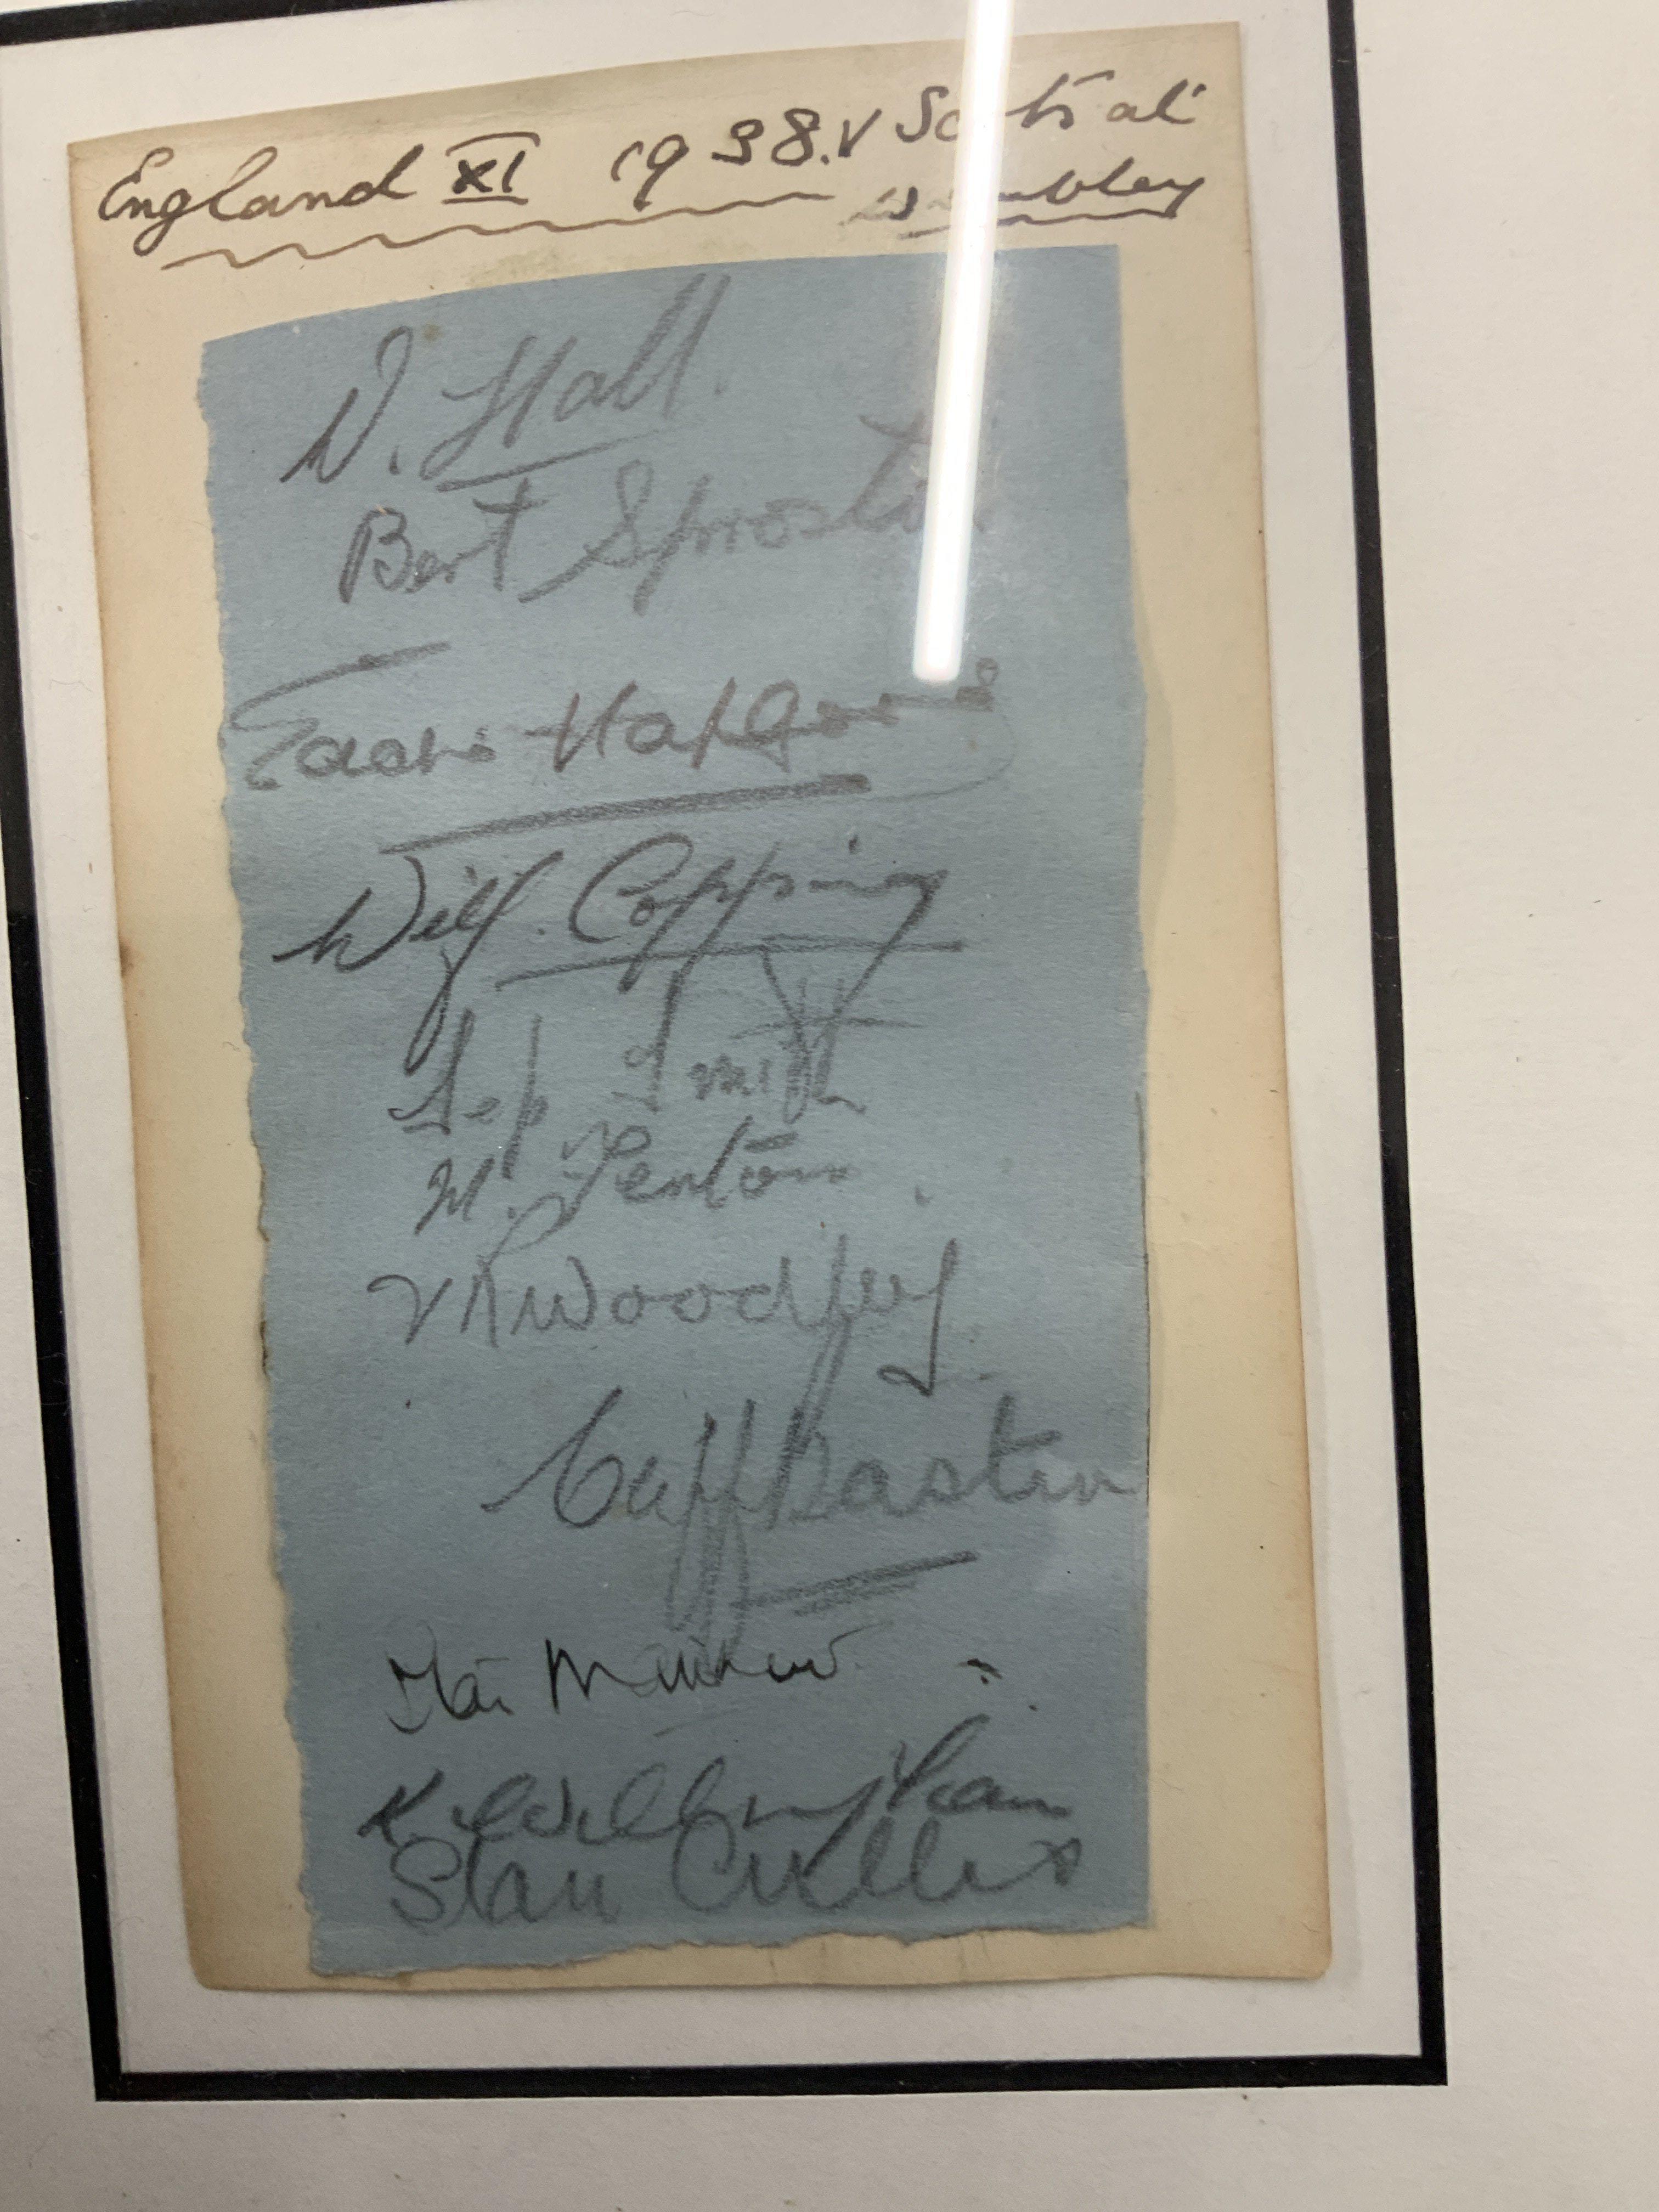 England XI 1938. v Scots at
Wembley
W. Hall.
Bert Sproston
Eddie Hapgood
Wilf. Copping
Sep Smith
M. Fenton
V R Woodley
Cliff Bastin
Stan Matthews
K. Willingham
Stan Cullis